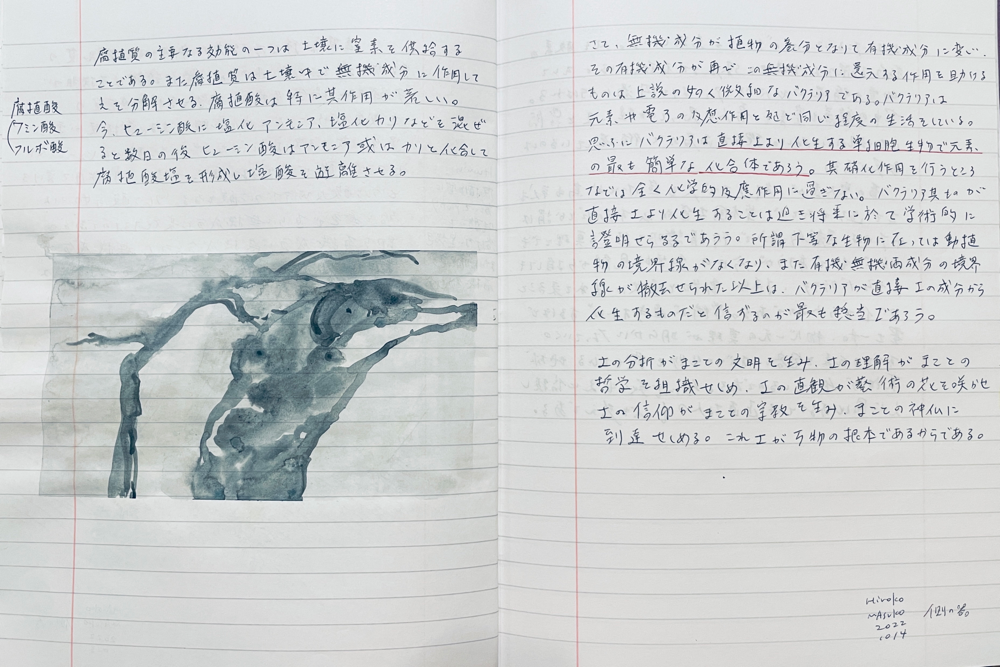 腐植質の主要なる効能の一つは土壌に窒素を供給する
ことである。また腐植質は土壌中で無機成分に作用して
之を分解させる。腐植酸は特に其作用が著しい。
腐植酸
フミン酸
フルボ酸
今、ヒューミン酸に塩化アンモニア、塩化カリなどを混ぜ
ると数日の後ヒューミン酸はアンモニア或はカリと化合して
腐植酸塩を形成し塩酸を遊離させる。
さて、無機成分が植物の養分となりて有機成分に変じ、
その有機成分が再び この無機成分に還元する作用を助ける
ものは上説の如く微細なバクテリアである。バクテリアは
元素や電子の反應作用と殆ど同じ程度の生活をしている。
思ふにバクテリアは直接土より化生する単細胞生物で元素
の最も簡単な化合体であろう。其硝化作用を行うところ
などは全く化学的反應作用に過ぎない。バクテリア其ものが
直接土より化生することは近き将来に於て学術的に
證明せらるるであろう。所謂下等な生物に在っては動植
物の境界線がなくなり、また有機無機両成分の境界
線が撤去せられた以上は、バクテリアが直接土の成分から
化生するものだと信ずるのが最も穏当であろう。
土の分析がまことの文明を生み、土の理解がまことの
哲学を組織せしめ、土の直観が藝術の花を咲かせ
土の信仰がまことの宗教を生み、まことの神仏に
到達せしめる。これ土が万物の根本であるからである。
Hiroko
Masuko
2022
1014